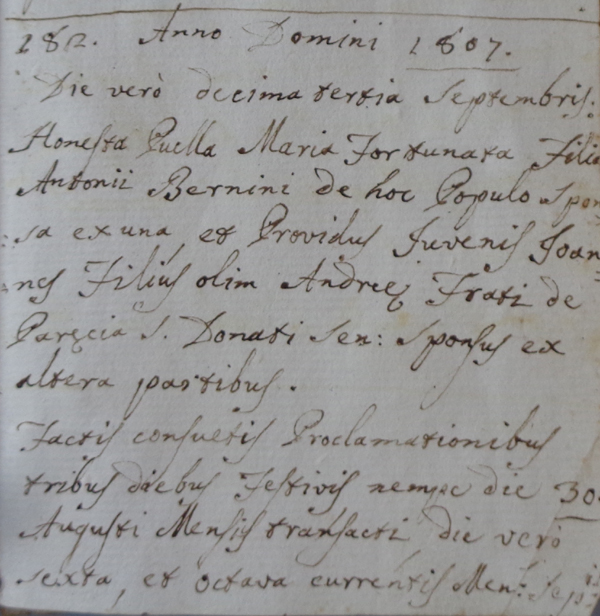 182. Anno Domini 1807.
Die verò decima tertia Septembris.
Honesta Puella Maria Fortunata Filia
Antonii Bernini de hoc Populo Spon
sa ex una, et Providus Juvenis Joan
nes Filius olim Andreę Frati de
Paręcia S. Donati Sen: Sponsus ex
altera partibus.
Factis consuetis Proclamationibus
tribus diebus Festivis nempe die 30.
Augusti Mensis transacti die verò
sexta, et octava currentis Men: Sep